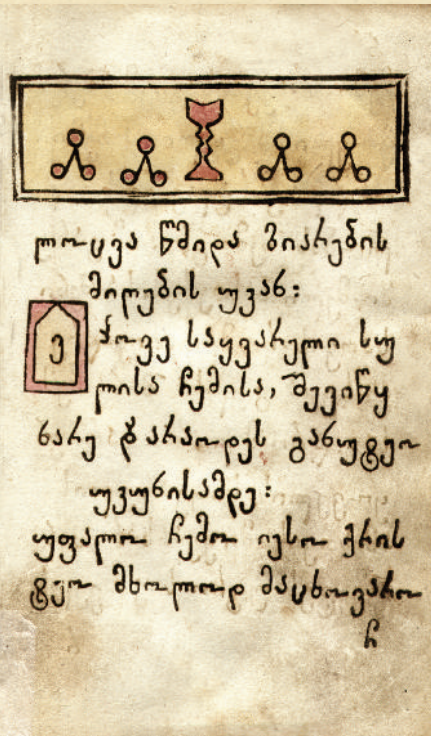 ლოცვა წმიდა ზიარების
მიღების უკან:
ვპოვე საყვარელი სუ
ლისა ჩემისა, შევიწყ
ნარე და არაოდეს განუტეო
უკუნისამდე:
უფალო ჩემო იესო ქრის
ტეო მხოლოდ მაცხოვარო
ჩ